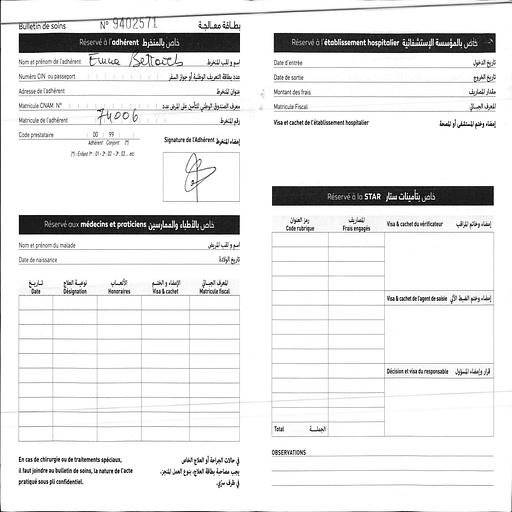 Bulletin de soins N° 9402571 بطاقة معالجة
Réservé à l'adhérent خاص بالمنخرط
Nom et prénom de l'adhérent Emna اسم و لقب المنخرط
Numéro CIN ou passeport عدد بطاقة التعريف الوطنية أو جواز السفر
Adresse de l'adhérent عنوان المنخرط
Matricule CNAM N° معرف الصندوق الوطني للتأمين على المرض عدد
Matricule de l'adhérent 74006 رقم المنخرط
Code prestataire 00 99
Adhérent Conjoint (*)
(*) : Enfant 1er : 01 - 2è : 02 - 3è : 03 ... etc
Signature de l'Adhérent إمضاء المنخرط
Réservé aux médecins et praticiens خاص بالأطباء والممارسين
Nom et prénom du malade اسم و لقب المريض
Date de naissance تاريخ الولادة
تاريخ نوعية العلاج الأتعاب الإمضاء و الختم المعرف الجبائي
Date Désignation Honoraires Visa & cachet Matricule fiscal
En cas de chirurgie ou de traitements spéciaux,
il faut joindre au bulletin de soins, la nature de l'acte
pratiqué sous pli confidentiel.
في حالات الجراحة أو العلاج الخاص
يجب مصاحبة بطاقة العلاج، بنوع العمل المنجز،
في ظرف سري.
Réservé à l'établissement hospitalier خاص بالمؤسسة الإستشفائية
Date d'entrée تاريخ الدخول
Date de sortie تاريخ الخروج
Montant des frais مقدار المصاريف
Matricule Fiscal المعرف الجبائي
Visa et cachet de l'établissement hospitalier إمضاء وختم المستشفى أو المصحة
Réservé à la STAR خاص بتأمينات ستار
رمز العنوان المصاريف
Code rubrique Frais engagés
Visa & cachet du vérificateur إمضاء وخاتم المراقب
Visa & cachet de l'agent de saisie إمضاء وختم الضبط الآلي
Décision et visa du responsable قرار وإمضاء المسؤول
Total الجملة
OBSERVATIONS